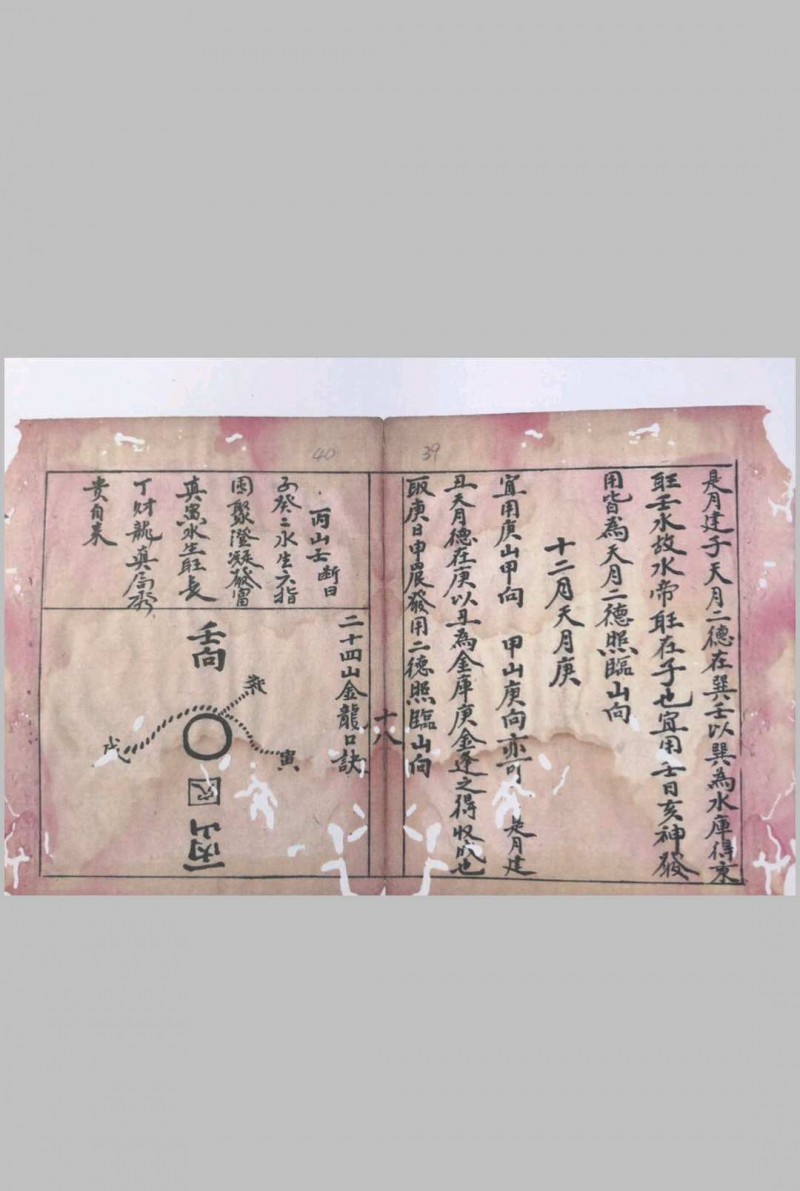 39
是月建子天月二德在巽壬以巽為水庫得東
旺壬水故水帝旺在子也宜用壬日亥神發
用皆為天月二德照臨山向
十二月天月庚
宜用庚山甲向 甲山庚向亦可 是月建
丑天月德在庚以丑為金庫庚金逢之得收成也
取庚日申晨發用二德照臨山向
十八
40
丙山壬斷曰
子癸二水生六指
困聚澄凝發富
真畧水生旺長
丁財龍真局秀
貴自來
二十四山金龍口訣
壬向
乾
戌
寅
穴
丙山